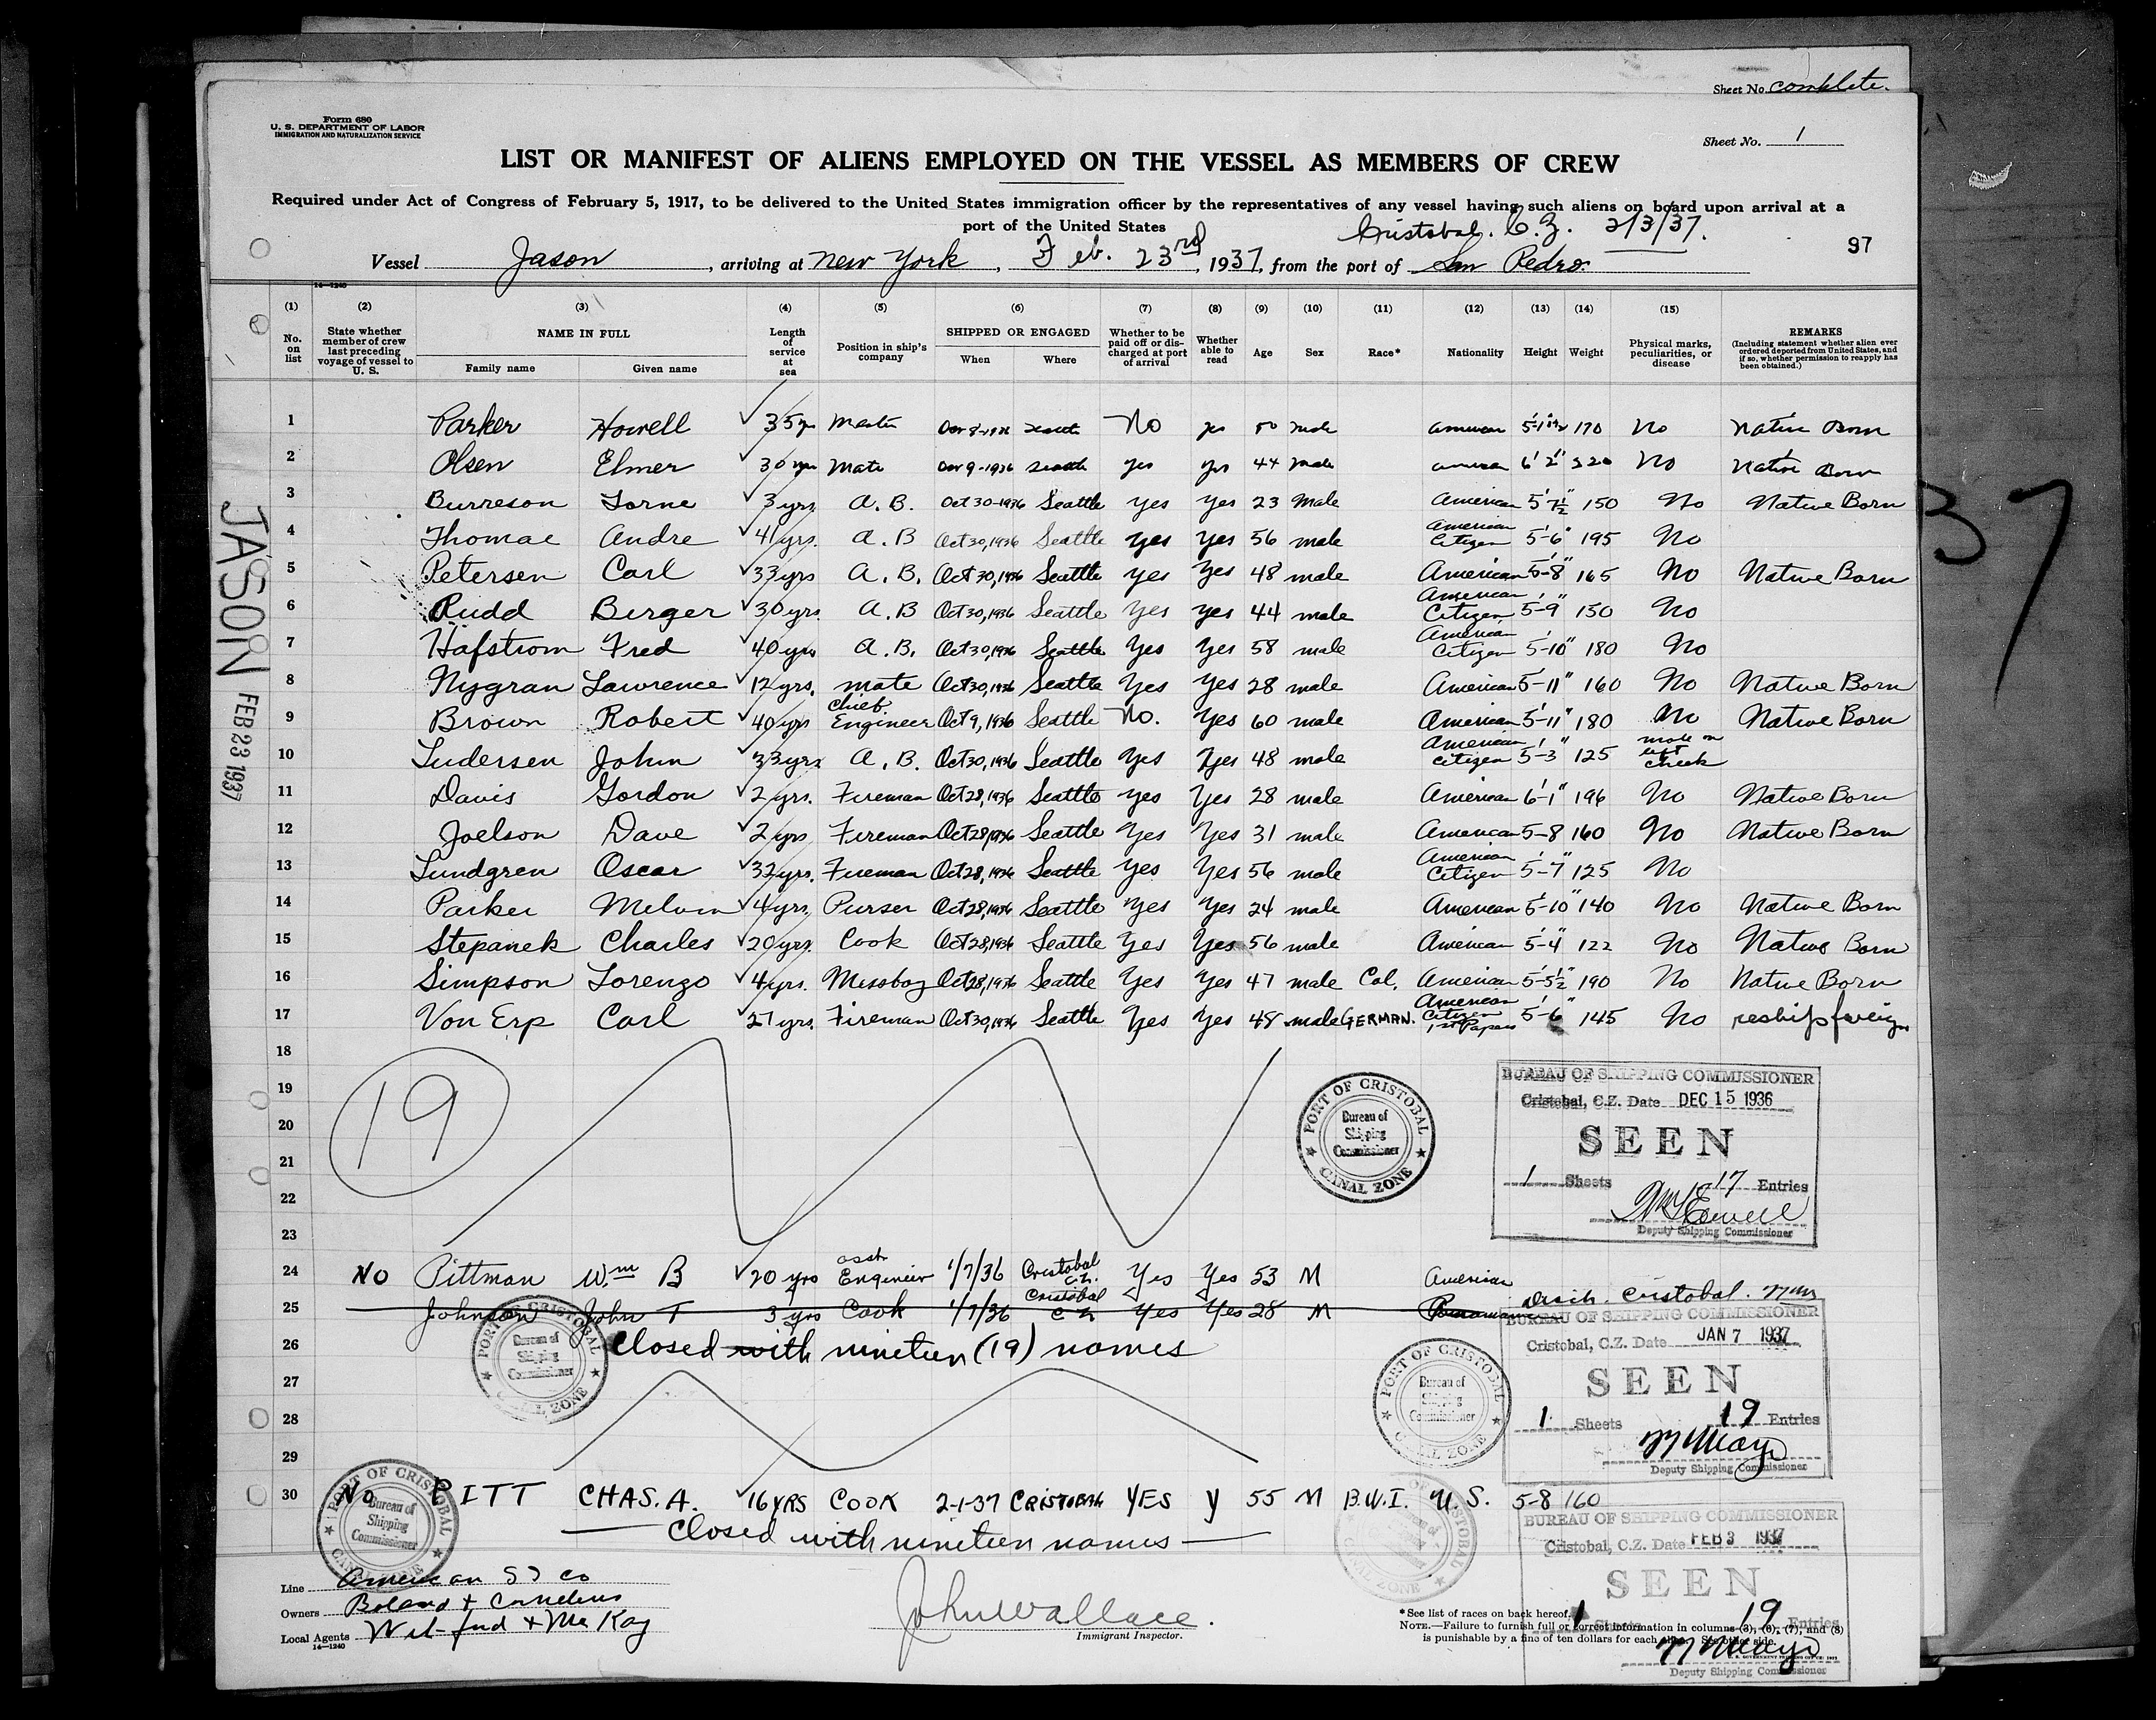 Sheet No. complete.
Form 680
U. S. DEPARTMENT OF LABOR
IMMIGRATION AND NATURALIZATION SERVICE
Sheet No. 1
LIST OR MANIFEST OF ALIENS EMPLOYED ON THE VESSEL AS MEMBERS OF CREW
Required under Act of Congress of February 5, 1917, to be delivered to the United States immigration officer by the representatives of any vessel having such aliens on board upon arrival at a
port of the United States
Cristobal. C.Z. 2/3/37.
Vessel Jason, arriving at New York, Feb. 23rd, 1937, from the port of San Pedro.
97
37
14—1240
(1) (2) (3) (4) (5) (6) (7) (8) (9) (10) (11) (12) (13) (14) (15)
No. on list
State whether member of crew last preceding voyage of vessel to U. S.
NAME IN FULL
Family name Given name
Length of service at sea
Position in ship's company
SHIPPED OR ENGAGED
When Where
Whether to be paid off or discharged at port of arrival
Whether able to read
Age Sex Race* Nationality Height Weight
Physical marks, peculiarities, or disease
REMARKS
(Including statement whether alien ever ordered deported from United States, and if so, whether permission to reapply has been obtained.)
1 Parker Howell 35 yrs Master 1936 Seattle No yes 50 male American 170 No Native Born
2 Olsen Elmer 30 yrs Mate 9-1936 Seattle yes yes 44 male American 6'2" 220 No Native Born
3 Burreson Lorne 3 yrs. A.B. Oct 30-1936 Seattle Yes Yes 23 Male American 5'-7½" 150 No Native Born
4 Thomae Andre 41 yrs. A.B Oct 30, 1936 Seattle yes Yes 56 male American Citizen 5'-6" 195 No
5 Petersen Carl 33 yrs A.B. Oct 30, 1936 Seattle yes Yes 48 male American 5'-8" 165 No Native Born
6 Rudd Birger 30 yrs. A.B Oct 30, 1936 Seattle Yes yes 44 male American Citizen 5'-9" 150 No
7 Hafstrom Fred 40 yrs A.B. Oct 30, 1936 Seattle Yes Yes 58 male American Citizen 5'-10" 180 No
8 Nygran Lawrence 12 yrs. mate Oct 30, 1936 Seattle Yes Yes 28 male American 5'-11" 160 No Native Born
9 Brown Robert 40 yrs Chief Engineer Oct 9, 1936 Seattle No. Yes 60 male American 5'-11" 180 No Native Born
10 Ludersen John 33 yrs A.B. Oct 30, 1936 Seattle Yes Yes 48 male American Citizen 5'-3" 125 mole on left cheek
11 Davis Gordon 2 yrs. Fireman Oct 28, 1936 Seattle yes Yes 28 male American 6'-1" 196 No Native Born
12 Joelson Dave 2 yrs Fireman Oct 28, 1936 Seattle Yes Yes 31 male American 5-8 160 No Native Born
13 Lundgren Oscar 32 yrs. Fireman Oct 28, 1936 Seattle Yes Yes 56 male American Citizen 5'-7" 125 No
14 Parker Melvin 4 yrs. Purser Oct 28, 1936 Seattle Yes Yes 24 male American 5'-10" 140 No Native Born
15 Stepanek Charles 20 yrs. Cook Oct 28, 1936 Seattle Yes Yes 56 male American 5'-4" 122 No Native Born
16 Simpson Lorenzo 4 yrs. Messboy Oct 28, 1936 Seattle Yes Yes 47 male Col. American 5'-5½" 190 No Native Born
17 Von Erp Carl 27 yrs. Fireman Oct 30, 1936 Seattle Yes Yes 48 male GERMAN. American Citizen 1st Papers 5'-6" 145 No reship foreign
18
19
20
21
22
23
19
PORT OF CRISTOBAL
Bureau of Shipping Commissioner
CANAL ZONE
BUREAU OF SHIPPING COMMISSIONER
Cristobal, C.Z. Date DEC 15 1936
SEEN
1 Sheets 17 Entries
Deputy Shipping Commissioner
24 No Pittman Wm B 20 yrs asst Engineer 1/7/36 Cristobal C.Z. Yes Yes 53 M American
25 Johnson John T 3 yrs Cook 1/7/36 Cristobal C Z Yes Yes 28 M Panamanian Disch. Cristobal.
26 Closed with nineteen (19) names
27
28
29
PORT OF CRISTOBAL
Bureau of Shipping Commissioner
CANAL ZONE
PORT OF CRISTOBAL
Bureau of Shipping Commissioner
CANAL ZONE
BUREAU OF SHIPPING COMMISSIONER
Cristobal, C.Z. Date JAN 7 1937
SEEN
1 Sheets 19 Entries
Deputy Shipping Commissioner
30 No PITT CHAS. A. 16 YRS COOK 2-1-37 CRISTOBAL YES Y 55 M B.W.I. U.S. 5-8 160
Closed with nineteen names
PORT OF CRISTOBAL
Bureau of Shipping Commissioner
CANAL ZONE
BUREAU OF SHIPPING COMMISSIONER
Cristobal, C.Z. Date FEB 3 1937
SEEN
1 Sheets 19 Entries
Deputy Shipping Commissioner
Line American SS Co
Owners Boland & Cornelius
Local Agents & McKay
14—1240
John Wallace.
Immigrant Inspector.
*See list of races on back hereof.
NOTE.—Failure to furnish full or correct information in columns (3), (6), (7), and (8)
is punishable by a fine of ten dollars for each alien. See other side.
JASON FEB 23 1937